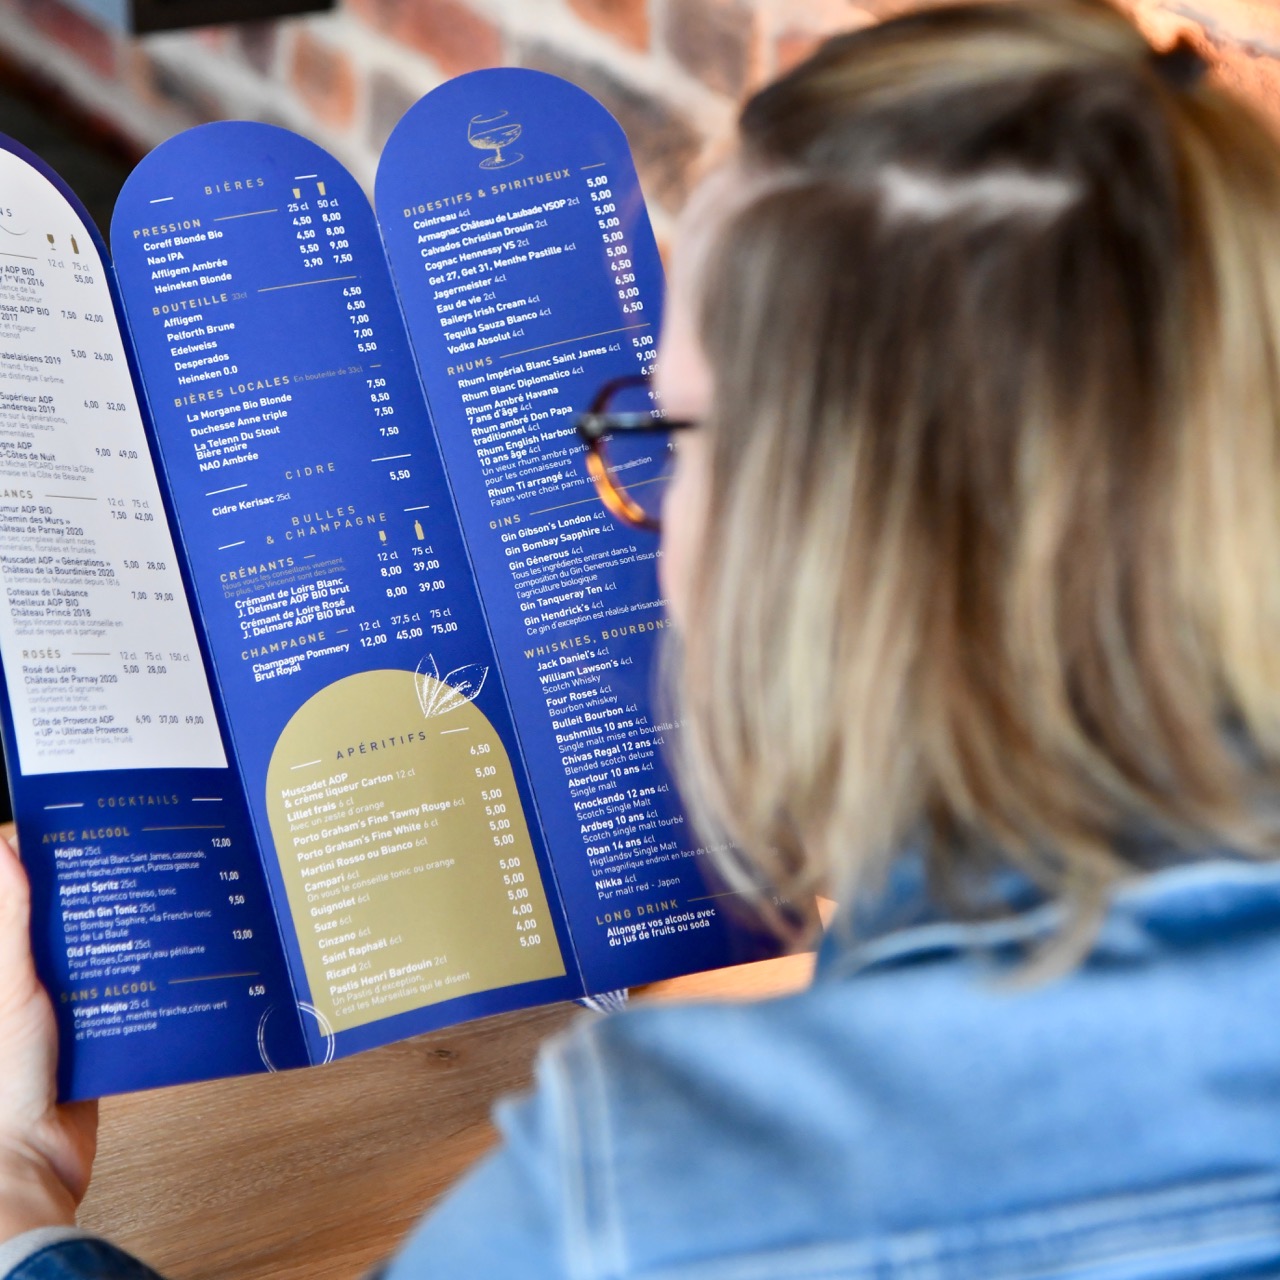 NS
12 cl 75 cl
y AOP BIO
y 1er Vin 2016
55,00
issac AOP BIO 7,50 42,00
2017
rabelaisiens 2019 5,00 26,00
friand, frais
se distingue l'arôme
Supérieur AOP 6,00 32,00
Landereau 2019
re sur 4 générations,
gne AOP 9,00 49,00
s-Côtes de Nuit
z Michel PICARD entre la Côte
nnaise et la Côte de Beaune
LANCS 12 cl 75 cl
umur AOP BIO 7,50 42,00
Chemin des Murs »
hâteau de Parnay 2020
n sec, complexe alliant notes
minérales, florales et fruitées
Muscadet AOP « Générations » 5,00 28,00
Château de la Bourdinière 2020
Le berceau du Muscadet depuis 1816
Coteaux de l'Aubance 7,00 39,00
Moelleux AOP BIO
Château Princé 2018
Regis Vincenot vous le conseille en
début de repas et à partager.
ROSÉS 12 cl 75 cl 150 cl
Rosé de Loire 5,00 28,00
Château de Parnay 2020
Les arômes d'agrumes
confortent le tonic
et la jeunesse de ce vin.
Côte de Provence AOP 6,90 37,00 69,00
« UP » Ultimate Provence
Pour un instant frais, fruité
et intense
COCKTAILS
AVEC ALCOOL
Mojito 25cl 12,00
Rhum Impérial Blanc Saint James, cassonade,
menthe fraiche,citron vert, Purezza gazeuse
Apérol Spritz 25cl 11,00
Apérol, prosecco treviso, tonic
French Gin Tonic 25cl 9,50
Gin Bombay Saphire, «la French» tonic
bio de La Baule
Old Fashioned 25cl 13,00
Four Roses,Campari,eau pétillante
et zeste d'orange
SANS ALCOOL
Virgin Mojito 25 cl 6,50
Cassonade, menthe fraiche,citron vert
et Purezza gazeuse
BIÈRES
PRESSION 25 cl 50 cl
Coreff Blonde Bio 4,50 8,00
Nao IPA 4,50 8,00
Affligem Ambrée 5,50 9,00
Heineken Blonde 3,90 7,50
BOUTEILLE 33cl
Affligem 6,50
Pelforth Brune 6,50
Edelweiss 7,00
Desperados 7,00
Heineken 0.0 5,50
BIÈRES LOCALES En bouteille de 33cl
La Morgane Bio Blonde 7,50
Duchesse Anne triple 8,50
La Telenn Du Stout 7,50
Bière noire
NAO Ambrée 7,50
CIDRE
Cidre Kerisac 25cl 5,50
BULLES
& CHAMPAGNE
CRÉMANTS 12 cl 75 cl
Nous vous les conseillons vivement.
De plus, les Vincenot sont des amis.
Crémant de Loire Blanc 8,00 39,00
J. Delmare AOP BIO brut
Crémant de Loire Rosé 8,00 39,00
J. Delmare AOP BIO brut
CHAMPAGNE 12 cl 37,5 cl 75 cl
Champagne Pommery 12,00 45,00 75,00
Brut Royal
APÉRITIFS
Muscadet AOP 6,50
& crème liqueur Carton 12 cl
Lillet frais 6 cl 5,00
Avec un zeste d'orange
Porto Graham's Fine Tawny Rouge 6cl 5,00
Porto Graham's Fine White 6 cl 5,00
Martini Rosso ou Bianco 6cl 5,00
Campari 6cl 5,00
On vous le conseille tonic ou orange
Guignolet 6cl 5,00
Suze 6cl 5,00
Cinzano 6cl 5,00
Saint Raphaël 6cl 4,00
Ricard 2cl 4,00
Pastis Henri Bardouin 2cl 5,00
Un Pastis d'exception,
c'est les Marseillais qui le disent
DIGESTIFS & SPIRITUEUX
Cointreau 4cl 5,00
Armagnac Château de Laubade VSOP 2cl 5,00
Calvados Christian Drouin 2cl 5,00
Cognac Hennessy VS 2cl 5,00
Get 27, Get 31, Menthe Pastille 4cl 5,00
Jagermeister 4cl 5,00
Eau de vie 2cl 6,50
Baileys Irish Cream 4cl 6,50
Tequila Sauza Blanco 4cl 8,00
Vodka Absolut 4cl 6,50
RHUMS
Rhum Impérial Blanc Saint James 4cl 5,00
Rhum Blanc Diplomatico 4cl 9,00
Rhum Ambré Havana
7 ans d'âge 4cl
Rhum ambré Don Papa
traditionnel 4cl
Rhum English Harbour
10 ans âge 4cl
Un vieux rhum ambré parfait
pour les connaisseurs
Rhum Ti arrangé 4cl
Faites votre choix parmi notre sélection
GINS
Gin Gibson's London 4cl
Gin Bombay Sapphire 4cl
Gin Générous 4cl
Tous les ingrédients entrant dans la
composition du Gin Generous sont issus de
l'agriculture biologique
Gin Tanqueray Ten 4cl
Gin Hendrick's 4cl
Ce gin d'exception est réalisé artisanalem
WHISKIES, BOURBONS
Jack Daniel's 4cl
William Lawson's 4cl
Scotch Whisky
Four Roses 4cl
Bourbon whiskey
Bulleit Bourbon 4cl
Bushmills 10 ans 4cl
Single malt mise en bouteille à
Chivas Regal 12 ans 4cl
Blended scotch deluxe
Aberlour 10 ans 4cl
Single malt
Knockando 12 ans 4cl
Scotch Single Malt
Ardbeg 10 ans 4cl
Scotch single malt tourbé
Oban 14 ans 4cl
Higtlandsv Single Malt
Un magnifique endroit en face de
Nikka 4cl
Pur malt red - Japon
LONG DRINK
Allongez vos alcools avec
du jus de fruits ou soda